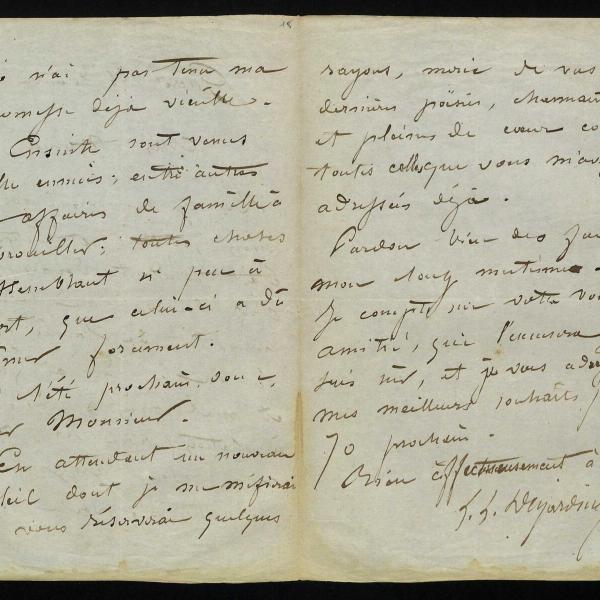 18
n'ai pas tenu ma
promesse déjà vieille.
Ensuite sont venus
mille ennuis; entre autres
affaires de famille à
débrouiller; toutes choses
ressemblant si peu à
que celui-ci a dû
forcément.
l'été prochain donc,
Monsieur.
En attendant un nouveau
soleil dont je me méfierai
vous réserverai quelques
rayons, merci de vos
dernières poësies, charmantes
et pleines de cœur comme
toutes celles que vous m'avez
adressées déjà.
Pardon bien des fois
mon long mutisme.
Je compte sur votre
amitié, qui l'excusera
suis sûr, et je vous adresse
mes meilleurs souhaits
70 prochain.
Bien affectueusement à
Desjardins